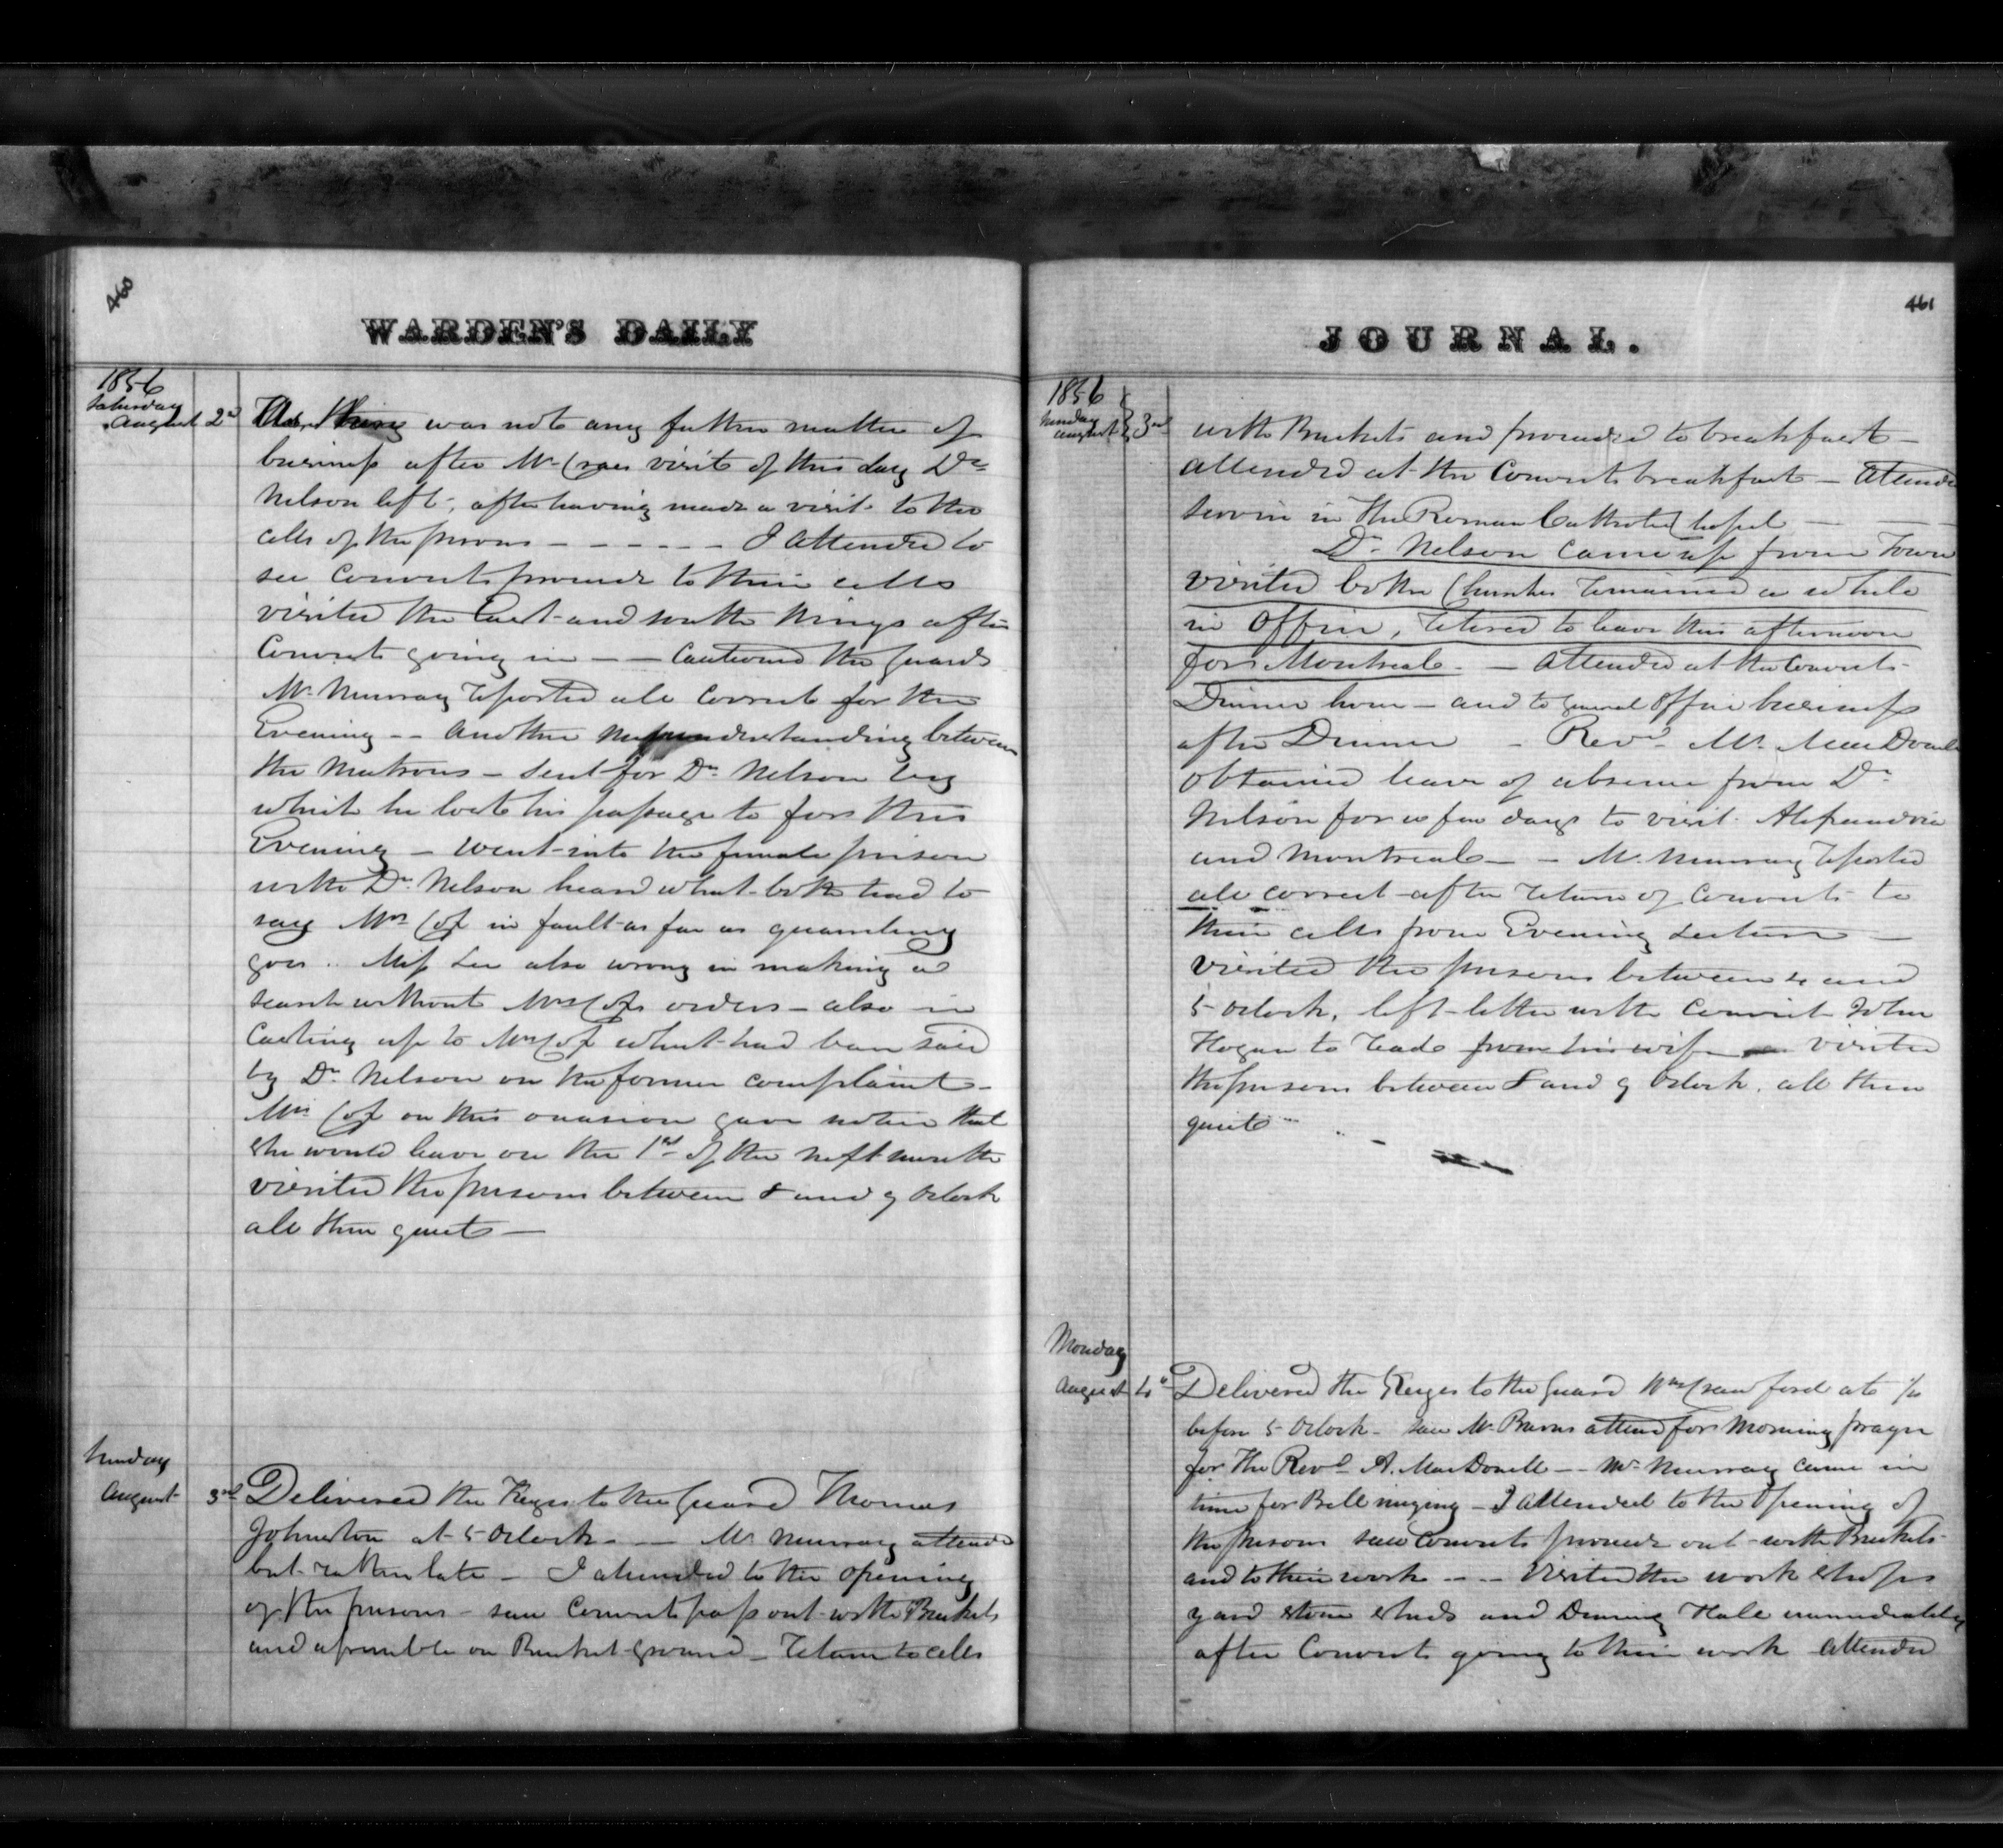 460
WARDEN'S DAILY
1856
Saturday
August 2d
was not any further matter of
business after Mr visit of this day Dr
Nelson left, after having made a visit to the
cells of the prisons - - - - - - I attended to
see Convicts proceed to their cells
visited the East and north Wings after
Convicts going in - - Cautioned the Guards
Mr Murray reported all correct for the
Evening - - Another misunderstanding between
the Matrons - Sent for Dr Nelson
which he lost his passage to for this
Evening - Went into the female prison
with Dr Nelson heard what both had to
say Mrs Cox in fault as far as quarreling
goes .. Miss Lee also wrong in making a
search without Mrs Coxs orders - also in
Casting up to Mrs Cox what had been said
by Dr Nelson on the former complaint -
Mrs Cox on this occasion gave notice that
she would leave on the 1st of the next month
visited the prisons between 8 and 9 Oclock
all then quiet -
Sunday
August 3rd Delivered the Keys to the Guard Thomas
Johnston at 5 Oclock - - Mr Murray attended
but rather late - I attended to the opening
of the prisons - saw Convicts pass out with Buckets
and assemble on Bucket Ground - Return to cells
461
JOURNAL.
1856
Sunday
August 3rd
with Buckets and proceed to breakfast -
attended at the Convicts breakfast - Attended
service in the Roman Catholic Chapel -
Dr Nelson came up from Town
visited both Churches remained a while
in Office, retired to leave this afternoon
for Montreal - Attended at the Convicts
Dinner hour - and to General Office business
after Dinner - Revd Mr MacDonell
obtained leave of absence from Dr
Nelson for a few days to visit Alexandria
and Montreal - - Mr Murray reported
all correct after return of Convicts to
their cells from Evening Lecture -
Visited the prisons between 4 and
5 Oclock, left letter with Convict John
Hogan to read from his wife visited
the prisons between 8 and 9 Oclock. all then
quiet
Monday
August 4th Delivered the Keys to the Guard Wm Crawford at
before 5 Oclock - saw Mr Burns attend for Morning prayer
for the Revd A. MacDonell - - Mr Murray came in
time for Bell ringing - I attended to the opening of
the prisons saw Convicts proceed out with Buckets
and to their work - - - Visited the work shops
yard stone sheds and Dining Hall immediately
after Convicts going to their work attended